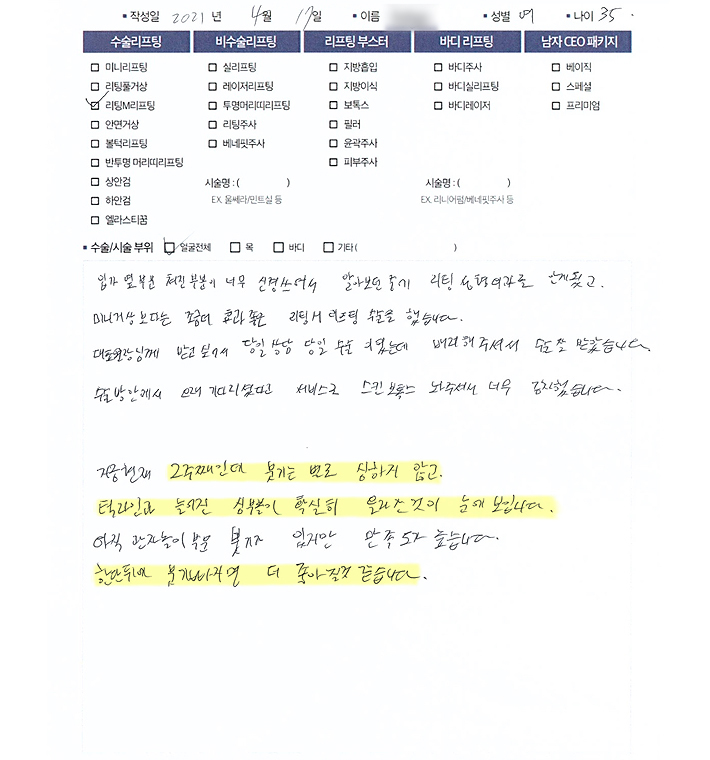 ▪ 작성일 2021 년 4월 17일 ▪ 이름 ▪ 성별 여 ▪ 나이 35.
수술리프팅 비수술리프팅 리프팅 부스터 바디 리프팅 남자 CEO 패키지
□ 미니리프팅 □ 실리프팅 □ 지방흡입 □ 바디주사 □ 베이직
□ 리팅풀거상 □ 레이저리프팅 □ 지방이식 □ 바디실리프팅 □ 스페셜
□ 리팅M리프팅 □ 투명머리띠리프팅 □ 보톡스 □ 바디레이저 □ 프리미엄
□ 안면거상 □ 리팅주사 □ 필러
□ 볼턱리프팅 □ 베네핏주사 □ 윤곽주사
□ 반투명 머리띠리프팅 □ 피부주사
□ 상안검 시술명 : ( ) 시술명 : ( )
□ 하안검 EX. 울쎄라/민트실 등 EX. 리니어펌/베네핏주사 등
□ 엘라스티꿈
▪ 수술/시술 부위 □ 얼굴전체 □ 목 □ 바디 □ 기타 ( )
입가 옆부분 쳐진 부분이 너무 신경쓰여서 알아보던중에 리팅 성형외과를 알게됐고.
미니거상보다는 조금더 효과좋은 리팅M 리프팅 수술을 했습니다.
대표원장님께 받고싶어서 당일상담 당일 수술 이였는데 배려해주셔서 수술 잘 받았습니다.
수술방안에서 오래 기다리셨다고 서비스로 스킨보톡스 놔주셔서 너무 감사했습니다.
지금현재 2주째인데 붓기는 별로 심하지 않고.
턱라인과 늘어진 심부볼이 확실히 올라간것이 눈에 보입니다.
아직 관자놀이부분 붓기가 있지만 만족도가 높습니다.
한달뒤에 붓기빠지면 더 좋아질것 같습니다.